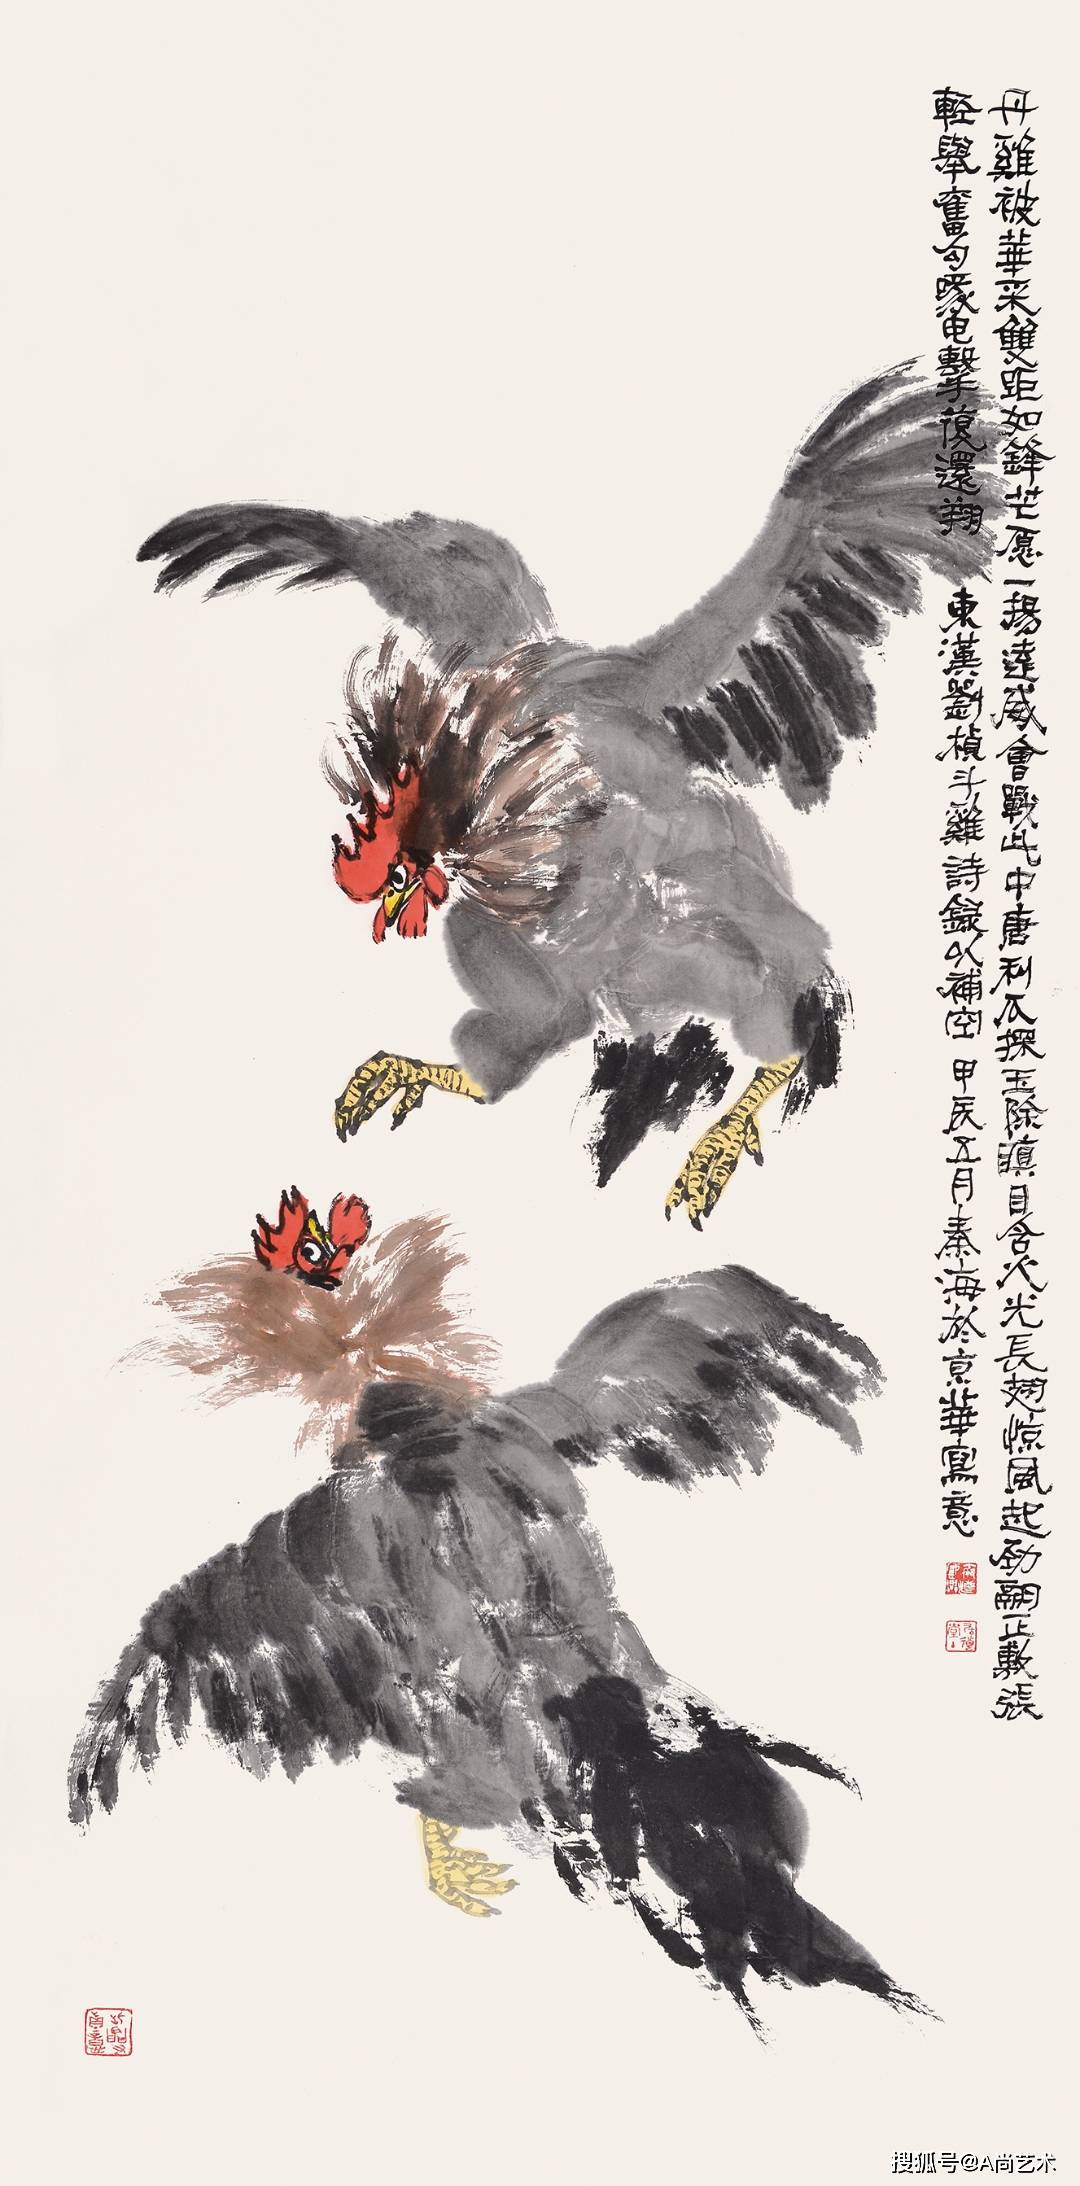 丹雞被華采雙距如鋒芒愿一揚遠威會戰此中唐利爪探玉除瞋目含火光長翅惊風起劲翮正敷張
輕舉奮勾喙电擊復還翔 東漢劉楨斗雞詩録以補空 甲辰五月秦海於京華寫意
搜狐号@A尚艺术